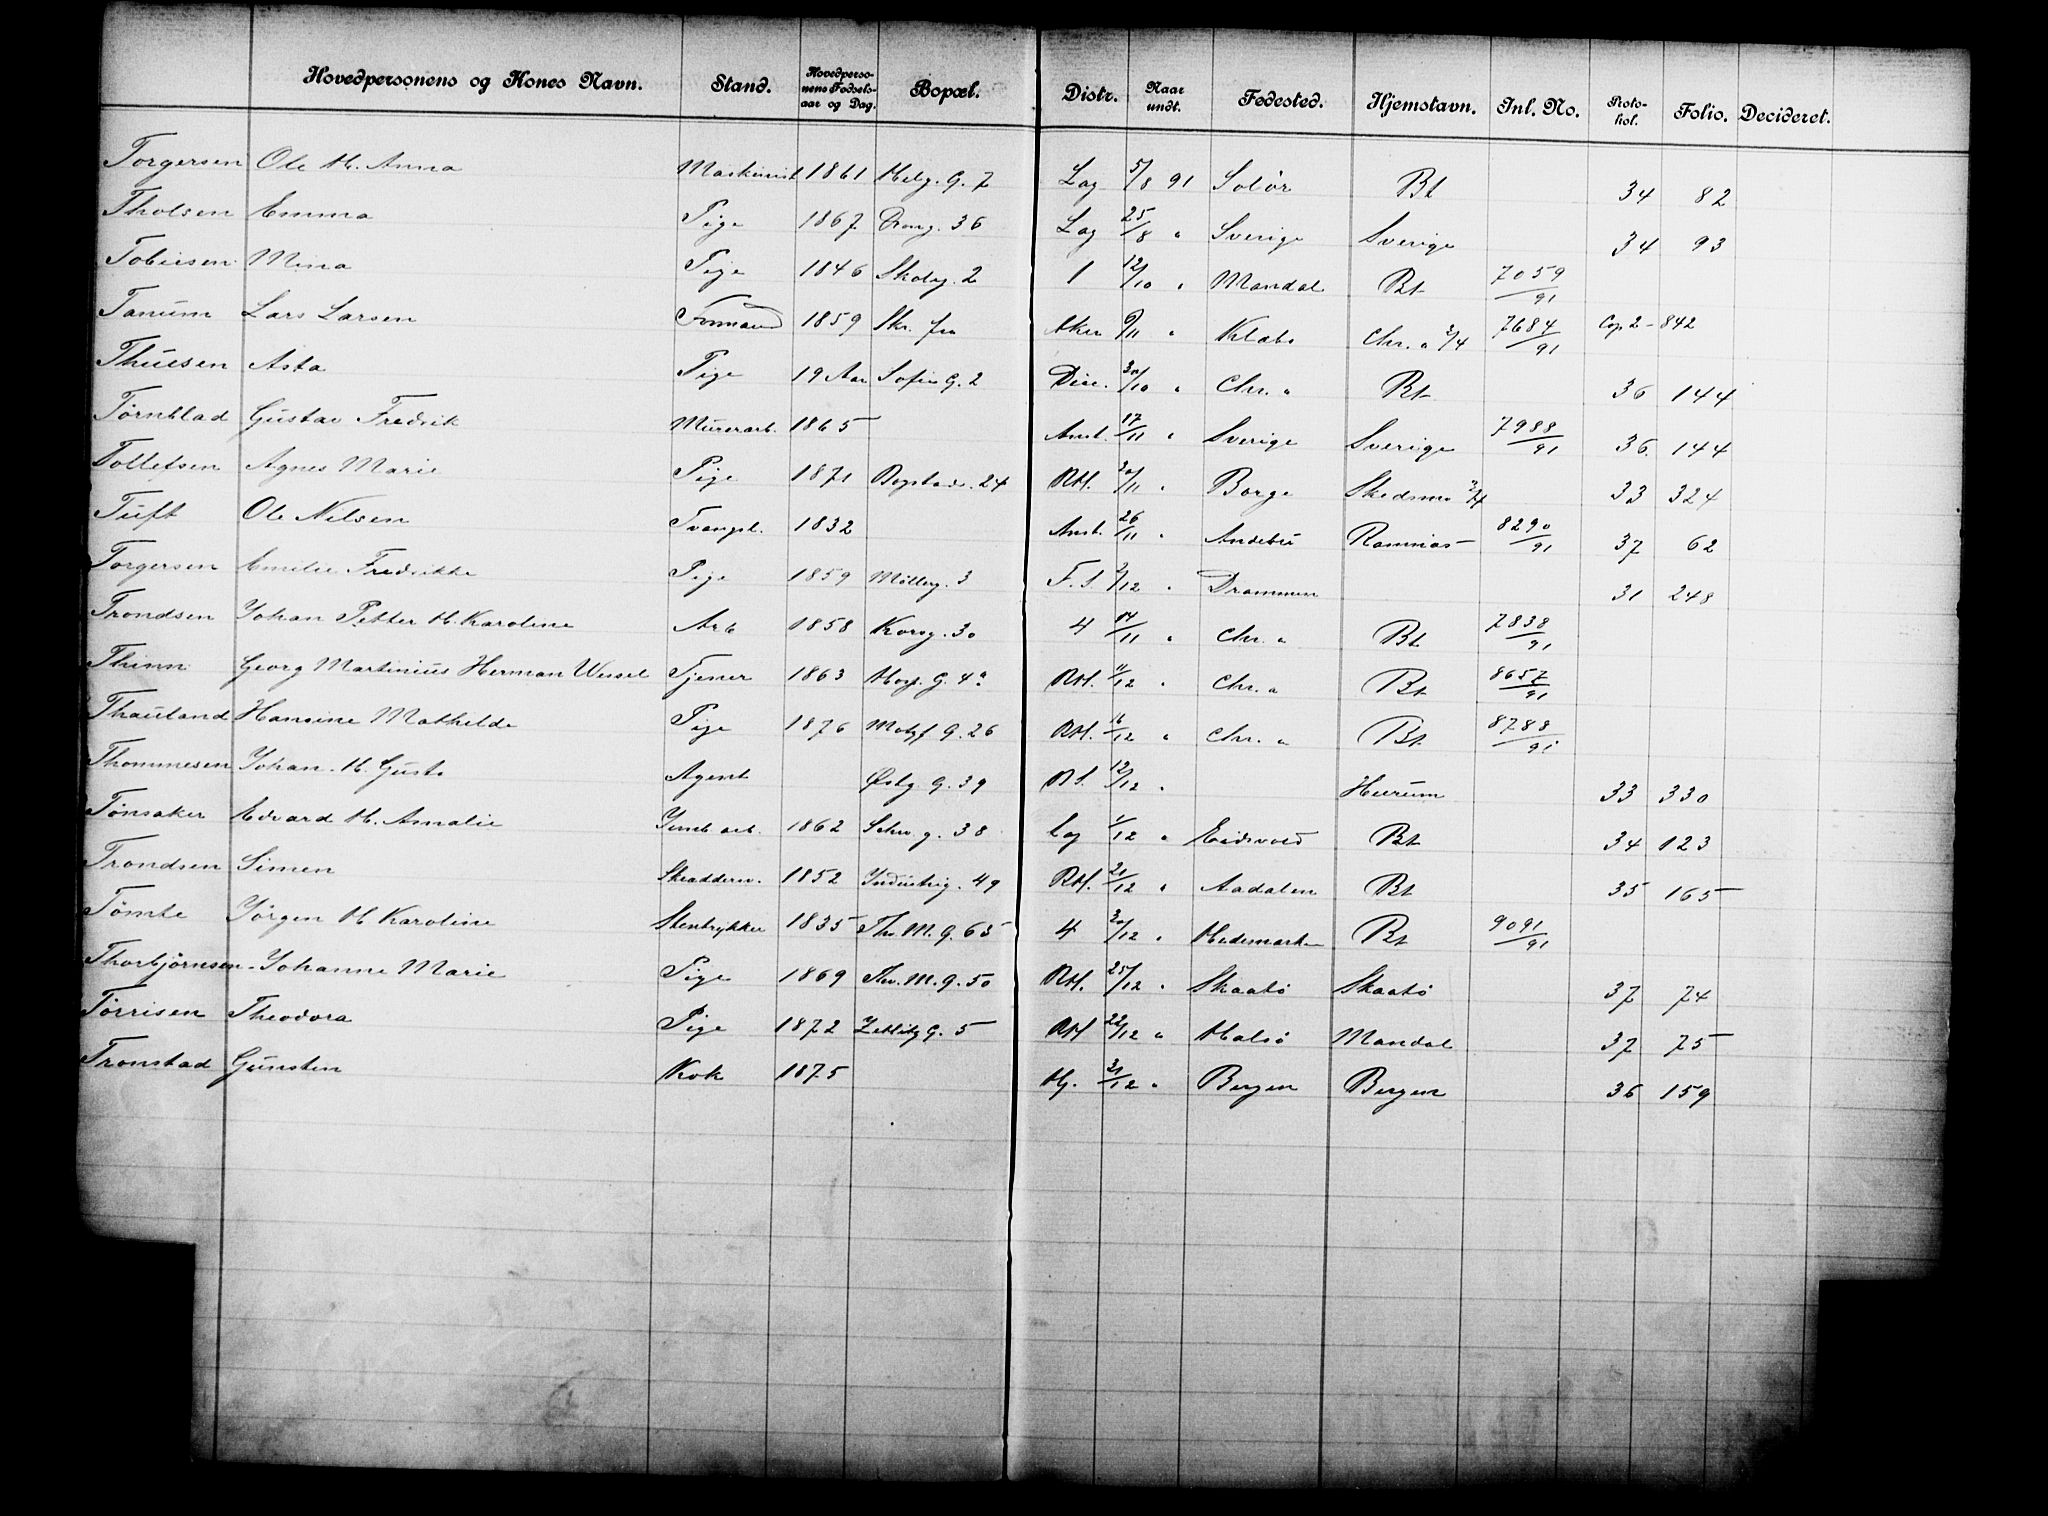 Hovedpersonens og Kones Navn. Stand. Hovedpersonens Fødselsaar og Dag. Bopæl. Distr. Naar undt. Fødested. Hjemstavn. Inl. No. Protokol. Folio. Decideret.
Torgersen Ole H. Anna Maskinist 1861 Helg. G. 7 Lag 5/8 91 Solør Bt 34 82
Tholsen Emma Pige 1867 36 Lag 25/8 " Sverige Sverige 34 93
Tobiesen Mina Pige 1846 Skoleg. 2 1 12/10 " Mandal Bt 7059/91
Tanum Lars Larsen Formand 1859 Aker 9/11 " Klæbo Chr. a 2/4 7684/91 Cop. 2 - 842
Thuesen Asta Pige 19 Aar Sofies G. 2 30/10 " Chr. a Bt 36 144
Törnblad Gustav Fredrik Murerarb. 1865 Anst. 17/11 " Sverige Sverige 7988/91 36. 144
Tollefsen Agnes Marie Pige 1871 Bogstadv. 24 RH. 20/11 " Borge Skedsmo 2/4 33 324
Tuft Ole Nilsen Tvangsl. 1832 Anst. 26/11 " Andebu Ramnæs 8290/91 37 62
Torgersen Emilie Fredrikke Pige 1859 Mölleg. 3 F. S 2/12 " Drammen 31 248
Trondsen Johan Petter H. Karoline Arb 1858 Korsg. 30 4 14/11 " Chr. a Bt 7838/91
Thinn Georg Martinius Herman Wessel Tjener 1863 Hosp. G. 4a RH. 11/12 " Chr. a Bt 8657/91
Thauland Hansine Mathilde Pige 1876 Motzf G. 26 RH. 16/12 " Chr. a Bt 8788/91
Thommesen Johan H. Gusta Agent Østg G. 39 12/12 " Hurum 33 330
Tønsaker Edvard H. Amalie Jernb arb. 1862 Schw. g. 38 Lag 1/12 " Eidsvold Bt 34 123
Trondsen Simen Skædderm. 1852 Industrig. 49 RH. 21/12 " Aadalen Bt 35 165
Tömte Jörgen H Karoline Stentrykker 1835 Thv. M. G. 65 4 30/12 " Hedemarken Bt 9091/91
Thorbjørnsen Johanne Marie Pige 1869 Thv. M. g. 50 RH. 25/12 " Skaatø Skaatø 37 74
Tørrisen Theodora Pige 1872 Zetlitz G. 5 RH 22/12 " Halsø Mandal 37 75
Tronstad Gunsten Kok 1875 31/12 " Bergen Bergen 36 159